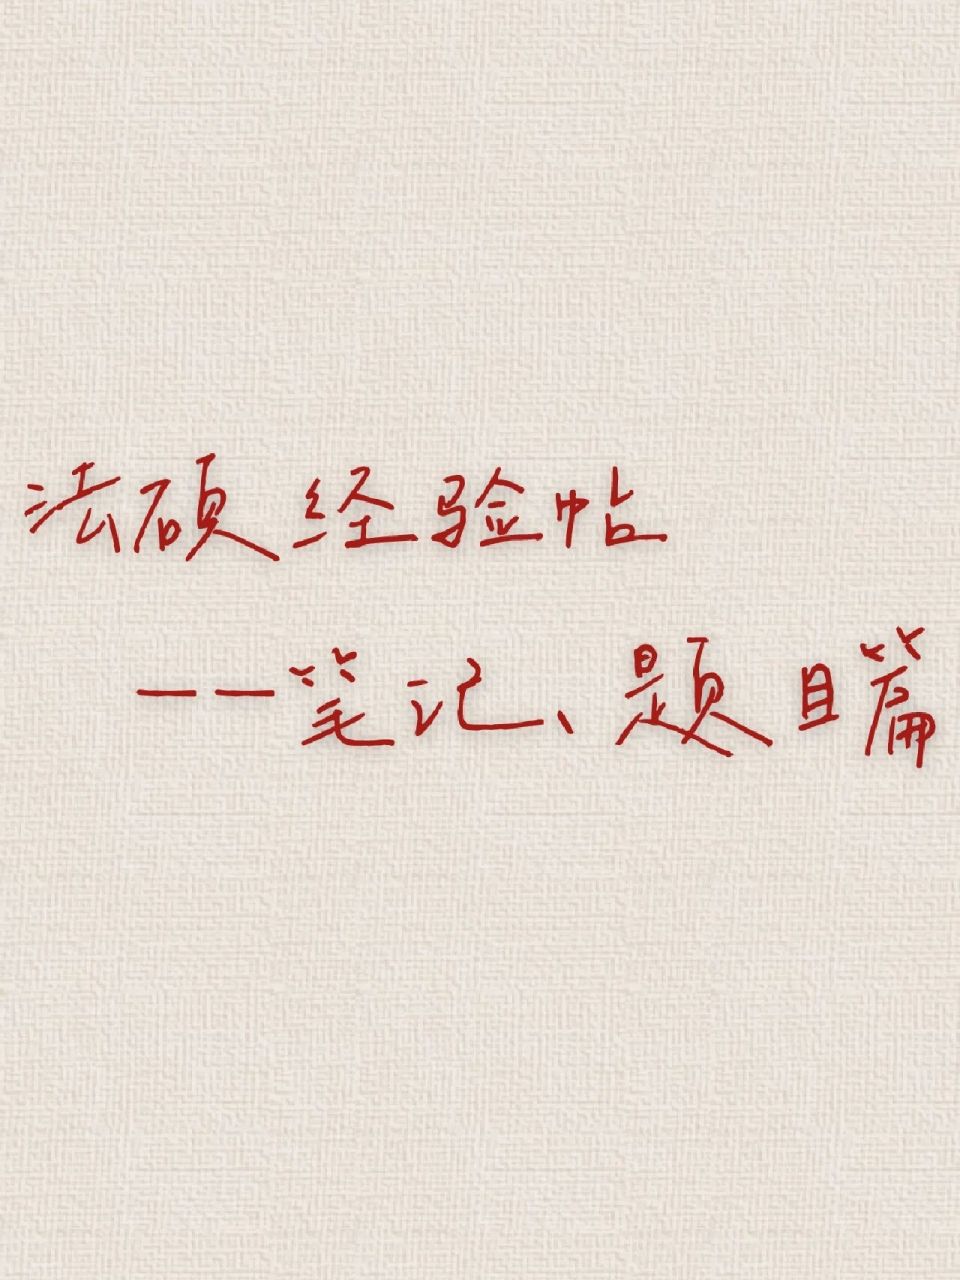 法硕经验帖
——笔记、题目篇